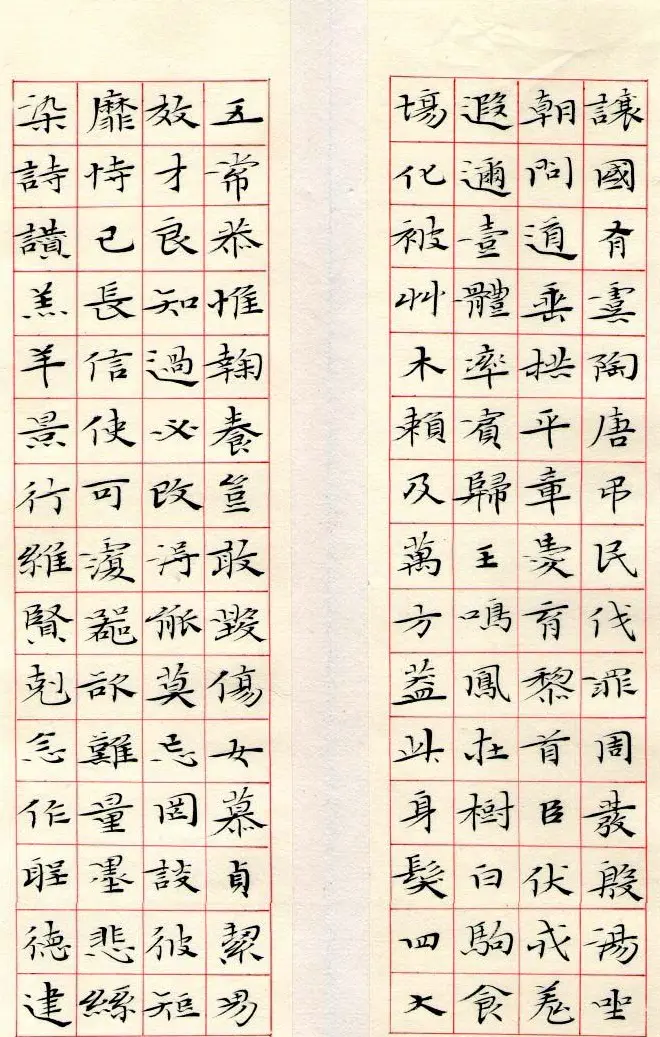 讓國有虞陶唐吊民伐罪周發殷湯坐
朝問道垂拱平章愛育黎首臣伏戎羌
遐邇壹體率賓歸王鳴鳳在樹白駒食
場化被艸木賴及萬方蓋此身髮四大
五常恭惟鞠養豈敢毀傷女慕貞絜男
效才良知過必改得能莫忘罔談彼短
靡恃己長信使可覆器欲難量墨悲絲
染詩讚羔羊景行維賢剋念作聖德建